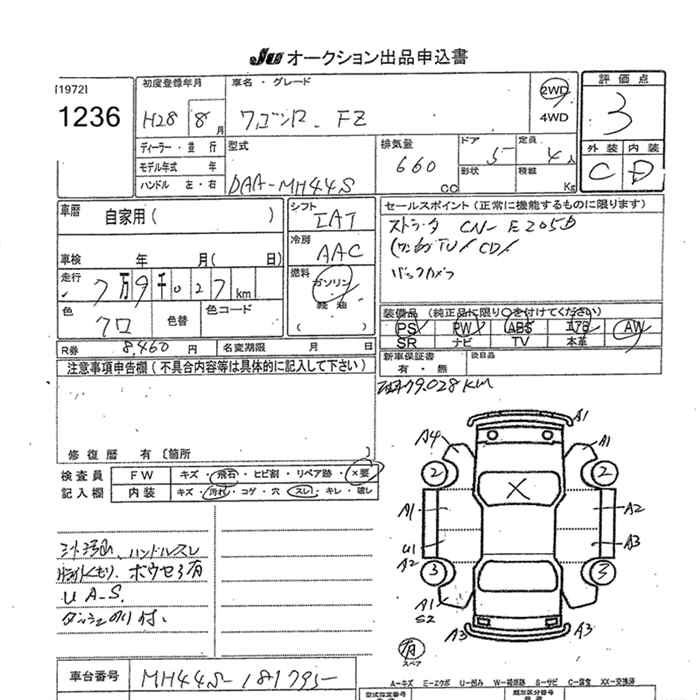 JU オークション出品申込書
[1972]
1236
初度登録年月
H28 8月
車名・グレード
ワゴンR FZ
2WD
4WD
評価点
3
外装 内装
C D
ディーラー・並行
モデル年式 年
ハンドル 左・右
型式
DAA-MH44S
排気量
660 CC
ドア
5
形状
定員
4人
積載
Kg
車歴
自家用( )
車検 年 月( 日)
走行
7万9千027km
色
クロ
色替
色コード
シフト
IAT
冷房
AAC
燃料
ガソリン・
軽油
( )
セールスポイント(正常に機能するものに限ります)
ストラーダ CN-E205D
(ワンセグTV/CD/
バックカメラ
装備品(純正品に限り○を付けてください)
PS PW ABS エアB AW
SR ナビ TV 本革
R券 8,460円 名変期限 月 日
新車保証書
有・無
後日品
79.028KM
注意事項申告欄(不具合内容等は具体的に記入して下さい)
修復歴 有〔箇所 〕
検査員
記入欄
FW キズ・飛石・ヒビ割・リペア跡・×要
内装 キズ・汚れ・コゲ・穴・スレ・キレ・破レ
ハンドルスレ
ホウセキ有
U A-S.
ダッシュのり付.
A1
A4 A1
2 2
X
A1 A2
U1
A2 A3
3 3
A1
S2
A3 A3
有
スペア
車台番号 MH44S-181795
A=キズ E=エクボ U=凹み W=補修跡 S=サビ C=腐食 XX=交換済